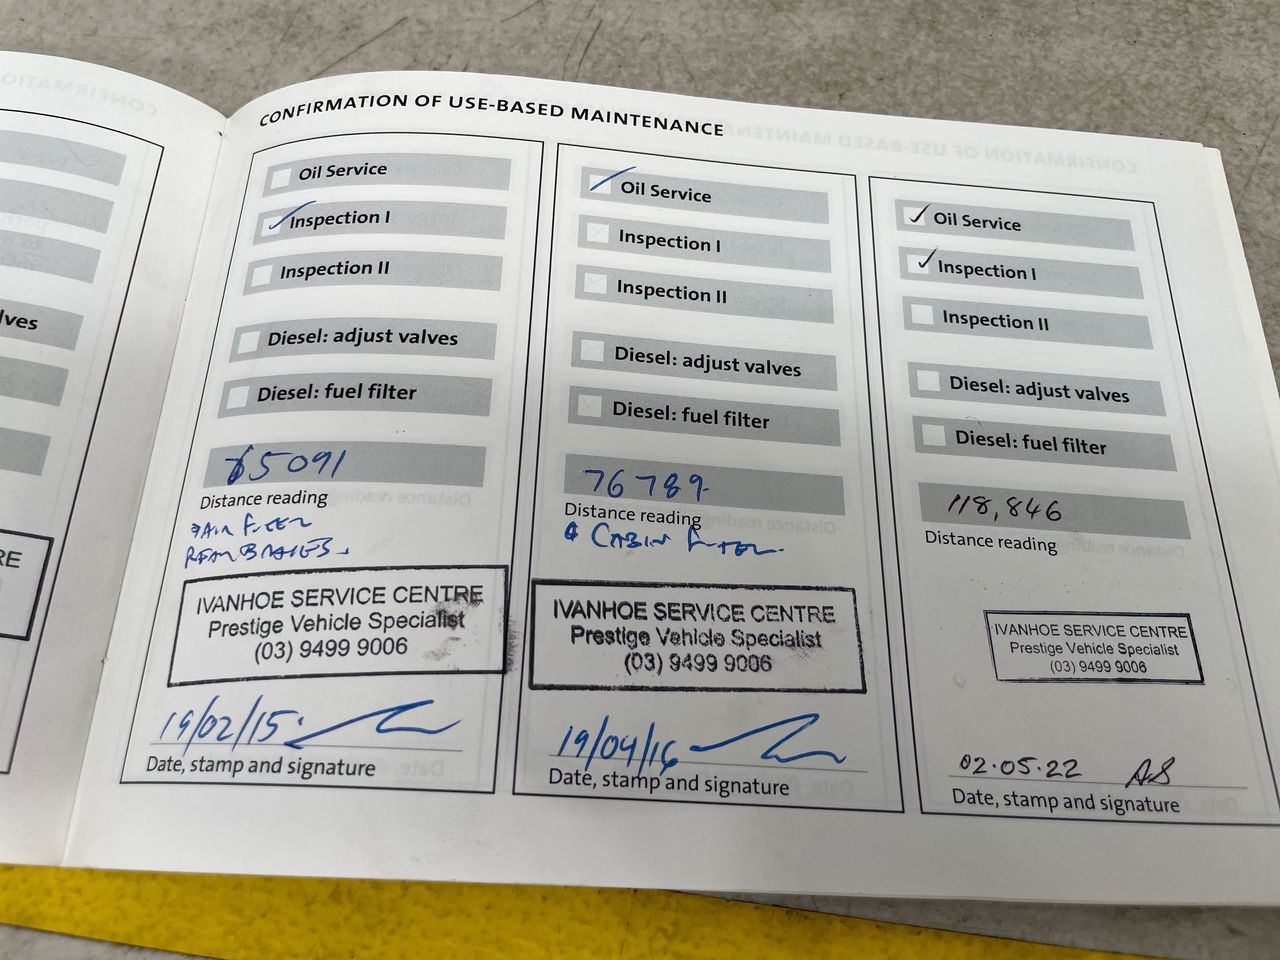 CONFIRMATION OF USE-BASED MAINTENANCE
lves
RE
Oil Service
Inspection I
Inspection II
Diesel: adjust valves
Diesel: fuel filter
65091
Distance reading
AIR FILTER
REAR BRAKES
IVANHOE SERVICE CENTRE
Prestige Vehicle Specialist
(03) 9499 9006
19/02/15
Date, stamp and signature
Oil Service
Inspection I
Inspection II
Diesel: adjust valves
Diesel: fuel filter
76789
Distance reading
CABIN FILTER
IVANHOE SERVICE CENTRE
Prestige Vehicle Specialist
(03) 9499 9006
19/04/16
Date, stamp and signature
Oil Service
Inspection I
Inspection II
Diesel: adjust valves
Diesel: fuel filter
118,846
Distance reading
IVANHOE SERVICE CENTRE
Prestige Vehicle Specialist
(03) 9499 9006
02.05.22 AS
Date, stamp and signature